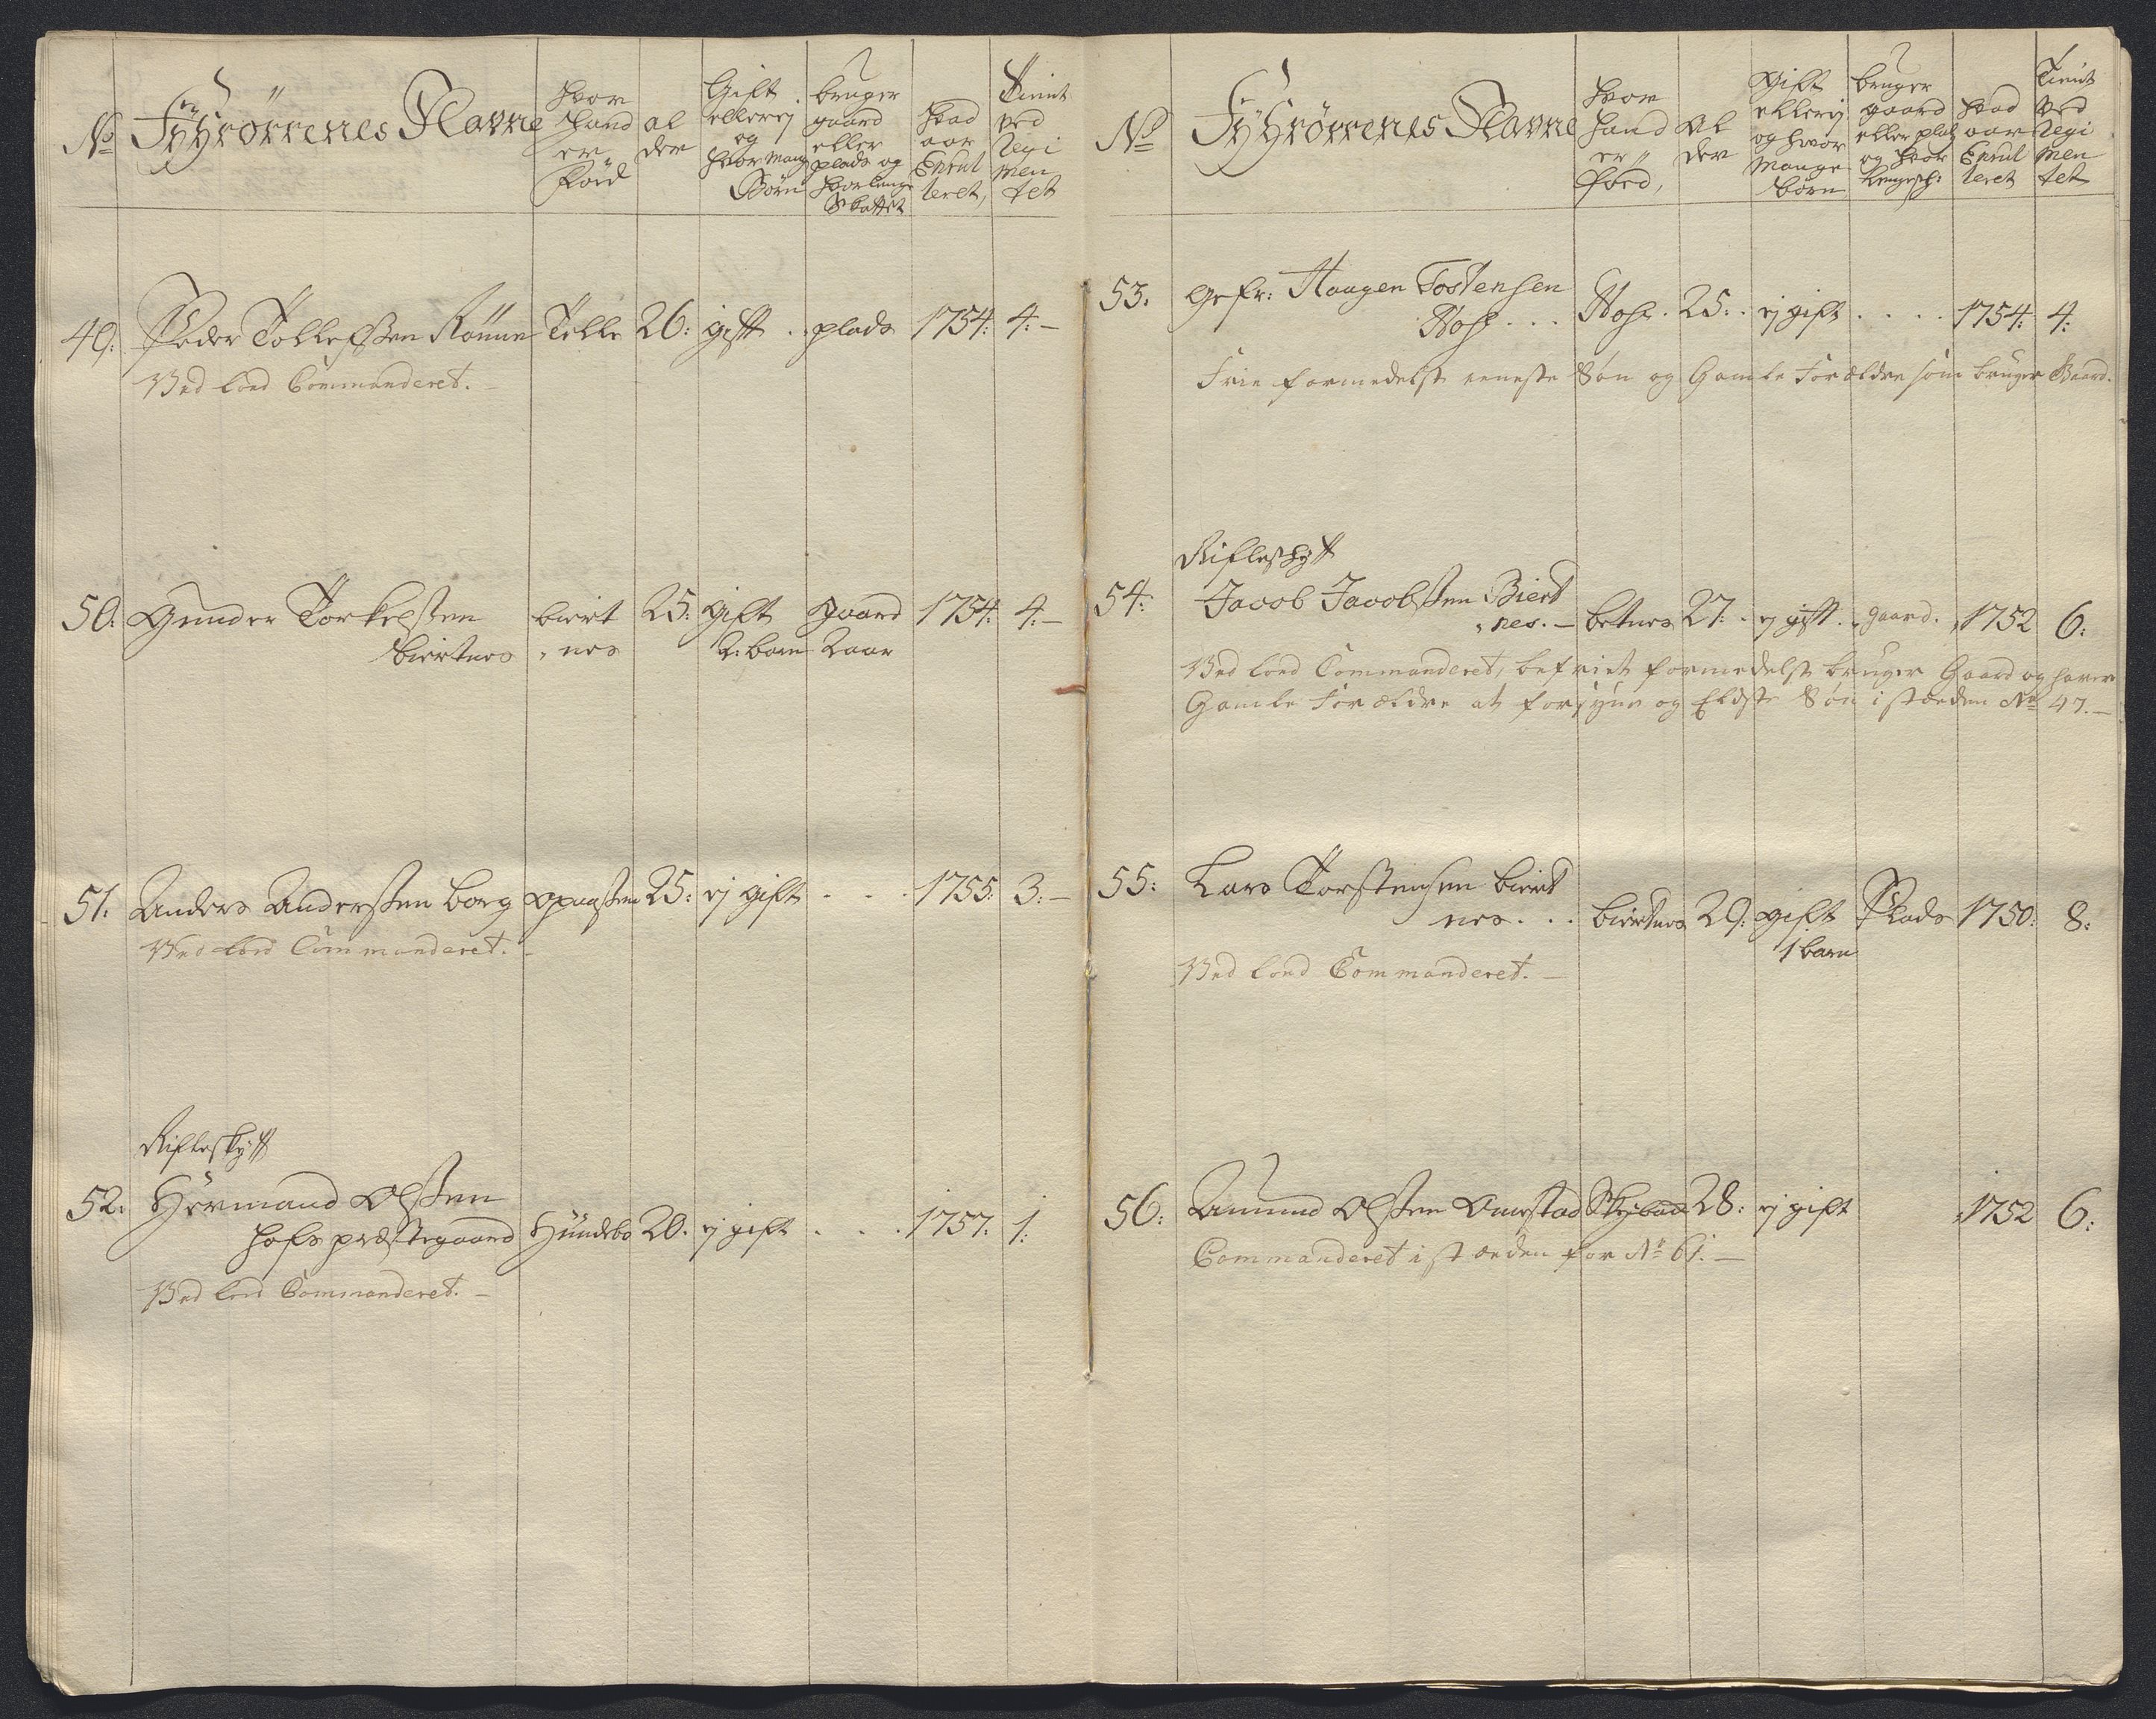 No
Fyhrörrenes Navne
hvor
hand
er
Föd
al
der
Gift
eller ej
og
hvor mang
Börn
bruger
gaard
eller
plads og
hvor lenge
Skattet
hvad
aar
Enrul
leret,
Tient
ved
regi
men
tet
49: Peder Tollefssen Rönne Tille 26: gift . plads 1754: 4:-
Ved Lord Commanderet.-
50: Gunder Torkelssen biert 25: gift gaard 1754: 4:-
biertnes , nes 2: barn 2 aar
51: Anders Anderssen borg 25: ej gift . . . 1755: 3:-
Ved Lord Commanderet.-
Rifleskytt
52: Hermand Olssen
hofs præstegaard Hundebo 20. ej gift . . . 1757: 1:
Ved Lord Commanderet.-
No
Fyhrörrenes Navne
hvor
hand
er
föed,
Al
der
gift
eller ej
og hvor
mange
börn
bruger
gaard
eller plads
og hvor
lenge sch:
hvad
aar
Enrul
leret
Tient
ved
regi
men
tet
53. Gefr: Haagen Tostensen
Hose . . . Hose . 25: . ej gift . . . . 1754: 4:
Frie formedelst eeneste Sön og Gamle Forældre som bruger Gaard.
Rifleskytt
54: Jacob Jacobssen Biert
, nes. - betnes 27: . ej gift . , gaard. , 1752 6:
Ved Lord Commanderet, befriet formedelst bruger Gaard og haver
Gamle Forældre at forsyne og Eldste Sön i stæden No 47.-
55: Lars Torstensen biert
nes . . . biertnes 29: gift Plads 1750: 8:
1 barn
Ved Lord Commanderet.-
56: Amund Olssen Amestad 28: ej gift , 1752 6:
Commanderet i stæden for No 61.-